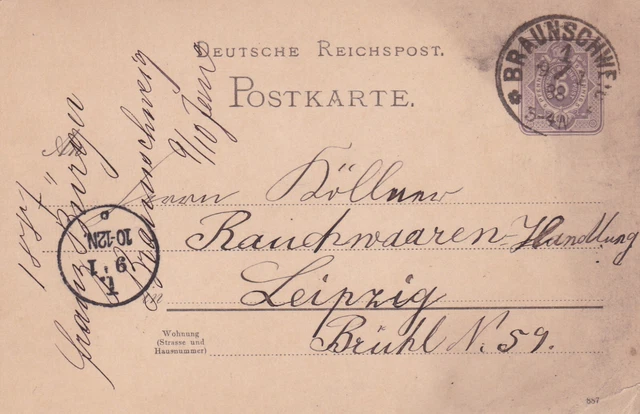 DEUTSCHE REICHSPOST.
POSTKARTE.
BRAUNSCHWEIG
An
Herrn Köllner
Rauchwaaren-Handlung
in Leipzig
Wohnung
(Strasse und
Hausnummer)
Brühl N. 59.
Braunschweig
9/10 Jan
9 1
10-12N
887